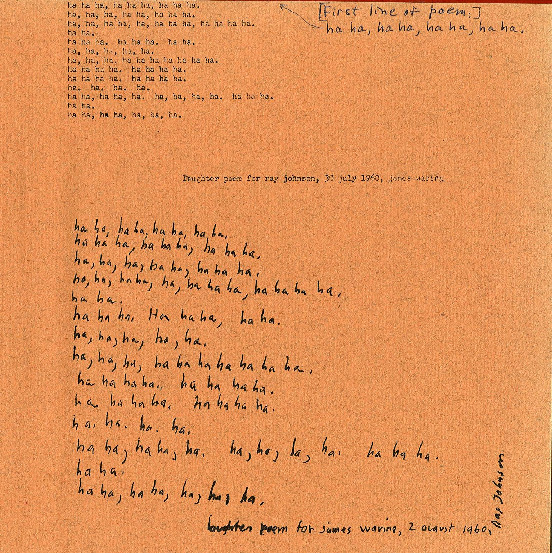 [First line of poem.]
ha ha, ha ha, ha ha, ha ha.
ha ha ha, ha ha ha, ha ha ha.
ha, ha, ha, ha ha, ha ha ha.
ha, ha, ha ha, ha, ha ha ha, ha ha ha ha.
ha ha.
ha ha ha. ha ha ha. ha ha.
ha, ha, ha, ha, ha.
ha, ha, ha, ha ha ha ha ha ha ha.
ha ha ha ha. ha ha ha ha.
ha ha ha ha. ha ha ha ha.
ha. ha. ha. ha.
ha ha, ha ha, ha. ha, ha, ha, ha. ha ha ha.
ha ha.
ha ha, ha ha, ha, ha, ha.
Daughter poem for ray johnson, 30 july 1960, james waring
ha ha, ha ha, ha ha, ha ha.
ha ha ha, ha ha ha, ha ha ha.
ha, ha, ha, ha ha, ha ha ha.
ha, ha, ha ha, ha, ha ha ha, ha ha ha ha.
ha ha.
ha ha ha. Ha ha ha, ha ha.
ha, ha, ha, ha, ha.
ha, ha, ha, ha ha ha ha ha ha ha.
ha ha ha ha. ha ha ha ha.
ha ha ha ha. ha ha ha ha.
ha. ha. ha. ha.
ha ha, ha ha, ha. ha, ha, ha, ha. ha ha ha.
ha ha.
ha ha, ha ha, ha, ha, ha.
laughter poem for James Waring, 2 august 1960,
Ray Johnson